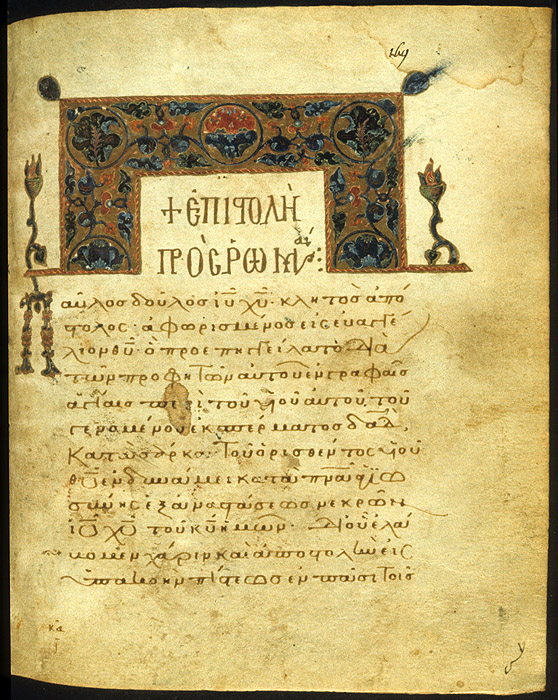 + ἐπιστολὴ
πρὸς ῥωμαι:
αῦλος δοῦλος ἰῦ χῦ· κλητὸς ἀπό
στολος· ἀφωρισμένος εἰς εὐαγγέ
λιον θῦ· ὃ προεπηγγείλατο διὰ
τῶν προφητῶν αὐτοῦ ἐν γραφαῖς
ἁγίαις περὶ τοῦ υἱοῦ αὐτοῦ, τοῦ
γενομένου ἐκ σπέρματος δᾱδ,
κατὰ σάρκα· τοῦ ὁρισθέντος υἱοῦ
θῦ ἐν δυνάμει κατὰ πνᾱ ἁγιω
σύνης ἐξ ἀναστάσεως νεκρῶν
ἰῦ χῦ τοῦ κῡ ἡμῶν· δι' οὗ ἐλά
βομεν χάριν καὶ ἀποστολὴν εἰς
ὑπακοὴν πίστεως ἐν πᾶσι τοῖς
κα